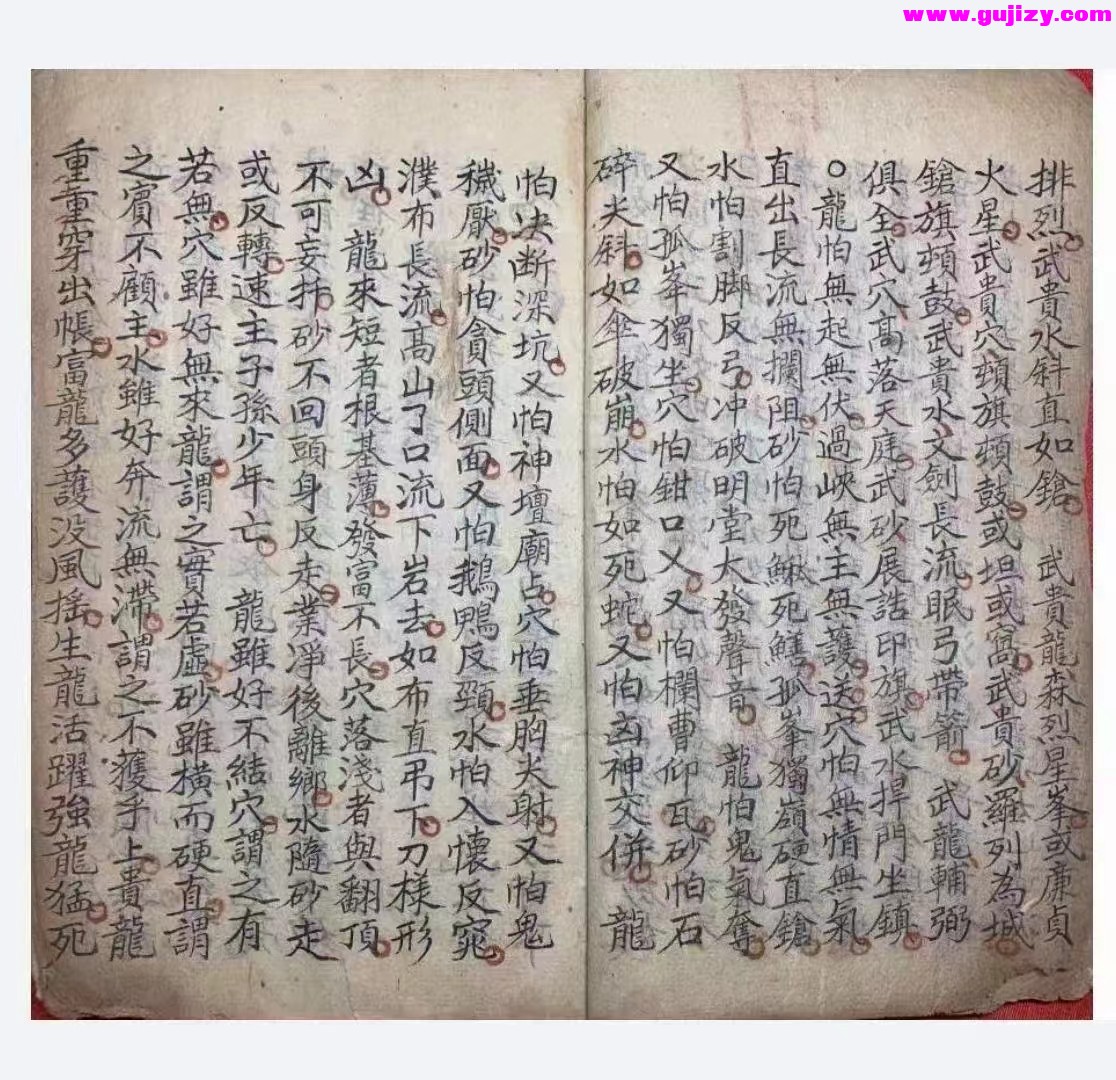 www.gujizy.com
排烈武貴水斜直如鎗 武貴龍森烈星峯或廉貞
火星武貴穴頓旗頓鼓或坦或窩武貴砂羅列為城
鎗旗頓鼓武貴水文劍長流眠弓帶箭 武龍輔弼
俱全武穴髙落天庭武砂展誥印旗武水捍門坐鎮
○龍怕無起無伏過峽無主無護送穴怕無情無氣
直出長流無攔阻砂怕死鰍死鱔孤峯獨嶺硬直鎗
水怕割脚反弓冲破明堂大發聲音 龍怕鬼氣奪
又怕孤峯獨坐穴怕鉗口又又怕欄曹仰瓦砂怕石
碎尖斜如傘破崩水怕如死蛇又怕凶神交併 龍
怕决断深坑又怕神壇廟占穴怕垂胸尖射又怕鬼
穢厭砂怕貪頭側面又怕鵝鴨反頸水怕入懐反窕
濮布長流髙山了口流下岩去如布直吊下刀樣形
凶 龍來短者根基薄發富不長穴落淺者與翻頂
不可妄扦砂不回頭身反走業凈後離鄉水隨砂走
或反轉速主子孫少年亡 龍雖好不結穴謂之有
若無穴雖好無來龍謂之實若虛砂雖横而硬直謂
之賓不顧主水雖好奔流無滯謂之不獲乎上貴龍
重重穿出帳富龍多護没風摇生龍活躍強龍猛死